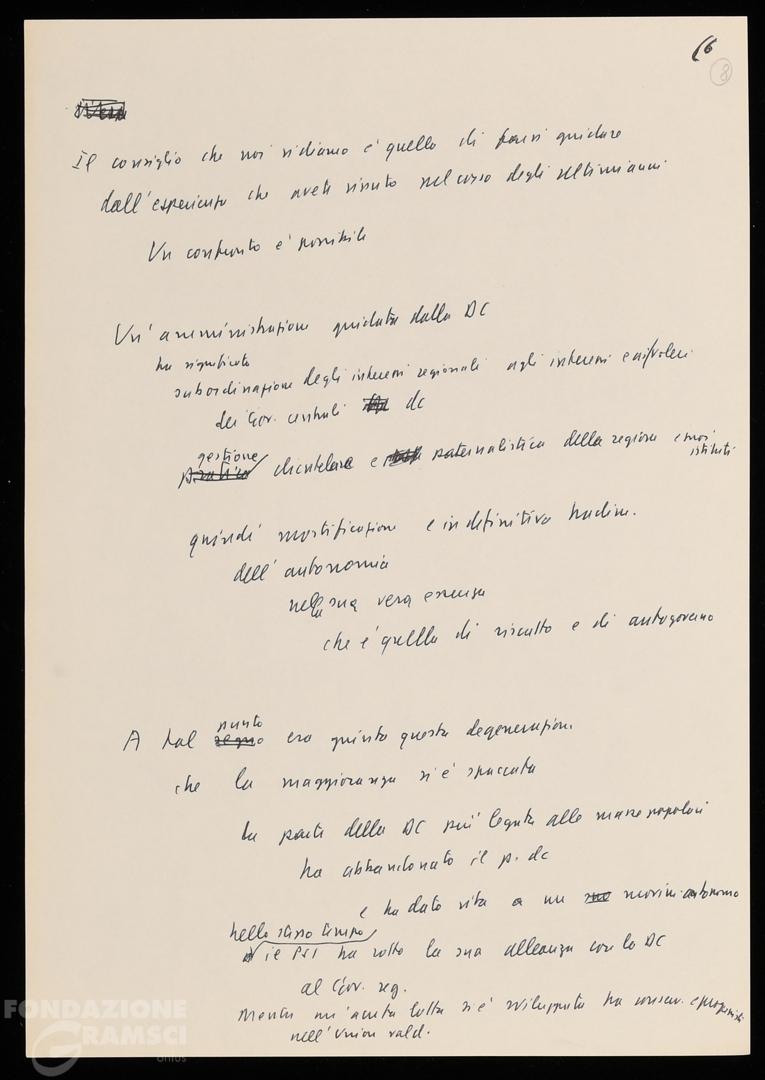 16
8
Il consiglio che noi vi diamo è quello di farvi guidare
dall'esperienza che avete vissuto nel corso degli ultimi anni
Un confronto è possibile
Un'amministrazione guidata dalla DC
ha significato
subordinazione degli interessi regionali agli interessi e ai voleri
dei Gov. centrali dc
gestione
clientelare e paternalistica della regione e suoi
istituti
quindi mortificazione e in definitiva tradim.
dell'autonomia
nella sua vera essenza
che è quella di riscatto e di autogoverno
punto
A tal segno era giunta questa degenerazion.
che la maggioranza si è spaccata
la parte della DC più legata alle masse popolari
ha abbandonato il p. dc
e ha dato vita a un movim. autonomo
nello stesso tempo
il PSI ha rotto la sua alleanza con la DC
al Gov. reg.
Mentre un'acuta lotta si è sviluppata tra conserv. e progressisti
nell'Union vald.
FONDAZIONE
GRAMSCI
onlus